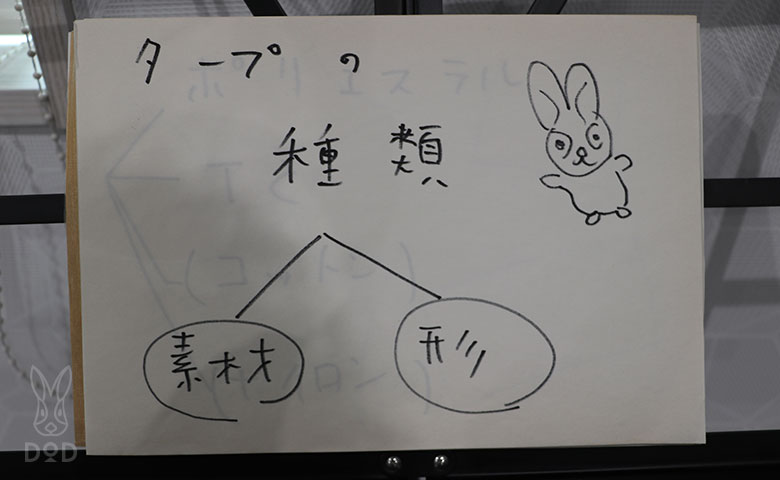 タープの
種類
素材
形
DOD